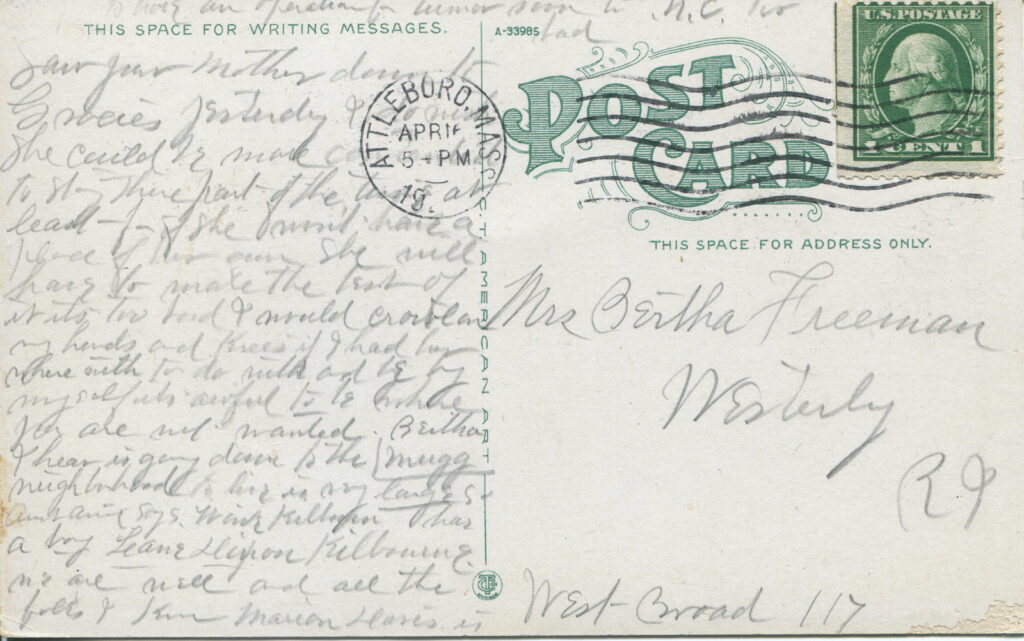 to have an operation for tumor soon to N.C. too
bad
THIS SPACE FOR WRITING MESSAGES.
A-33985
Saw your Mother down to
Gracies yesterday I
She could be more
to stay there part of the time at
least - if she won't have a
place of her own she will
have to make the best of
it its too bad I would crawl on
my hands and knees if I had
where with to do with and be by
myself its awful to be where
you are not wanted. Bertha
I hear is going down to the Mugg
neighborhood to live in
says. Kilbourn has
a boy Kilbourne.
we are well and all the
folks I Marion Davis is
ATTLEBORO, MASS.
APR
5 - PM
19
POST
CARD
U.S. POSTAGE
1 CENT 1
THIS SPACE FOR ADDRESS ONLY.
AMERICAN ART
Mrs Bertha Freeman
Westerly
R I
West Broad 117